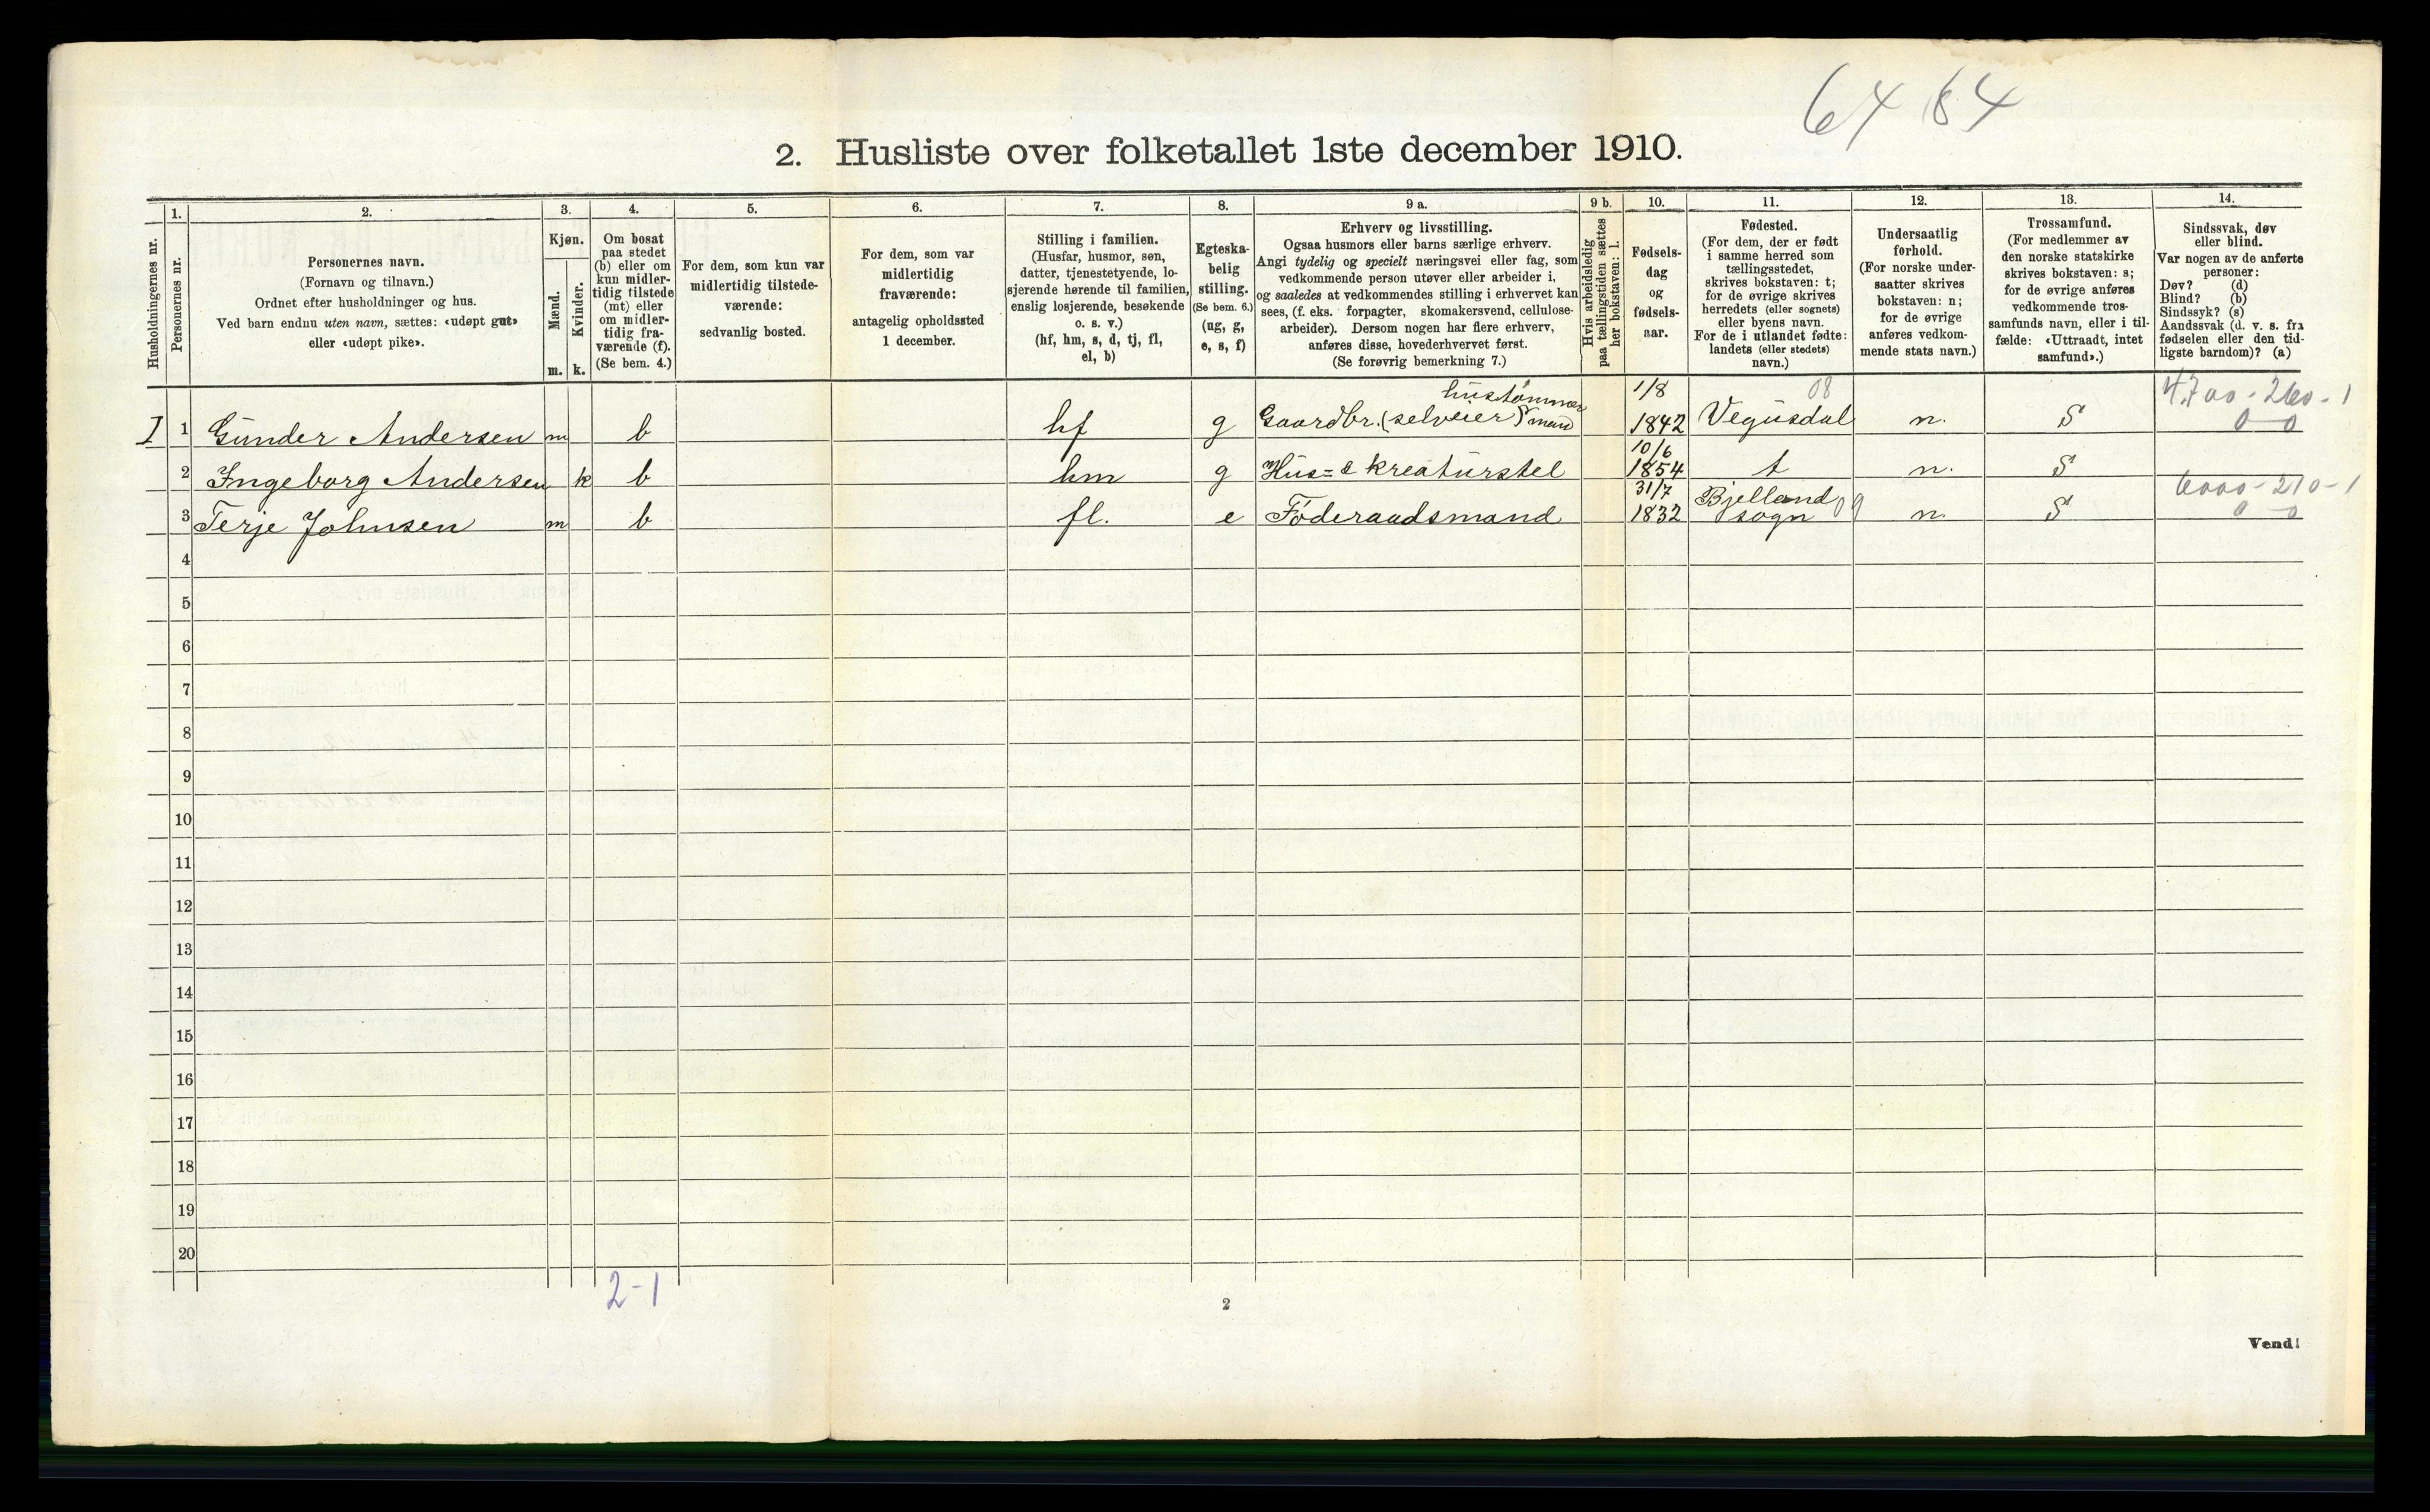 64 84
2. Husliste over folketallet 1ste december 1910.
Husholdningernes nr.
1.
Personernes nr.
2.
Personernes navn.
(Fornavn og tilnavn.)
Ordnet efter husholdninger og hus.
Ved barn endnu uten navn, sættes: «udøpt gut»
eller «udøpt pike».
3.
Kjøn.
Mænd.
Kvinder.
m. k.
4.
Om bosat
paa stedet
(b) eller om
kun midler-
tidig tilstede
(mt) eller
om midler-
tidig fra-
værende (f).
(Se bem. 4.)
5.
For dem, som kun var
midlertidig tilstede-
værende:
sedvanlig bosted.
6.
For dem, som var
midlertidig
fraværende:
antagelig opholdssted
1 december.
7.
Stilling i familien.
(Husfar, husmor, søn,
datter, tjenestetyende, lo-
sjerende hørende til familien,
enslig losjerende, besøkende
o. s. v.)
(hf, hm, s, d, tj, fl,
el, b)
8.
Egteska-
belig
stilling.
(Se bem. 6.)
(ug, g,
e, s, f)
9 a.
Erhverv og livsstilling.
Ogsaa husmors eller barns særlige erhverv.
Angi tydelig og specielt næringsvei eller fag, som
vedkommende person utøver eller arbeider i,
og saaledes at vedkommendes stilling i erhvervet kan
sees, (f. eks. forpagter, skomakersvend, cellulose-
arbeider). Dersom nogen har flere erhverv,
anføres disse, hovederhvervet først.
(Se forøvrig bemerkning 7.)
9 b.
Hvis arbeidsledig
paa tællingstiden sættes
her bokstaven: l.
10.
Fødsels-
dag
og
fødsels-
aar.
11.
Fødested.
(For dem, der er født
i samme herred som
tællingsstedet,
skrives bokstaven: t;
for de øvrige skrives
herredets (eller sognets)
eller byens navn.
For de i utlandet fødte:
landets (eller stedets)
navn.)
12.
Undersaatlig
forhold.
(For norske under-
saatter skrives
bokstaven: n;
for de øvrige
anføres vedkom-
mende stats navn.)
13.
Trossamfund.
(For medlemmer av
den norske statskirke
skrives bokstaven: s;
for de øvrige anføres
vedkommende tros-
samfunds navn, eller i til-
fælde: «Uttraadt, intet
samfund».)
14.
Sindssvak, døv
eller blind.
Var nogen av de anførte
personer:
Døv? (d)
Blind? (b)
Sindssyk? (s)
Aandssvak (d. v. s. fra
fødselen eller den tid-
ligste barndom)? (a)
hustømmer 1/8 08 4700-260-1
I 1 Gunder Andersen m b hf g Gaardbr. (selveier) mand 1842 Vegusdal n. S 0-0
10/6
2 Ingeborg Andersen k b hm g Hus= & kreaturstel 1854 t n. S
31/7 Bjelland 09 6000-210-1
3 Terje Johnsen m b fl. e Føderaadsmand 1832 sogn n. S 0-0
4
5
6
7
8
9
10
11
12
13
14
15
16
17
18
19
20
2-1
2
Vend!